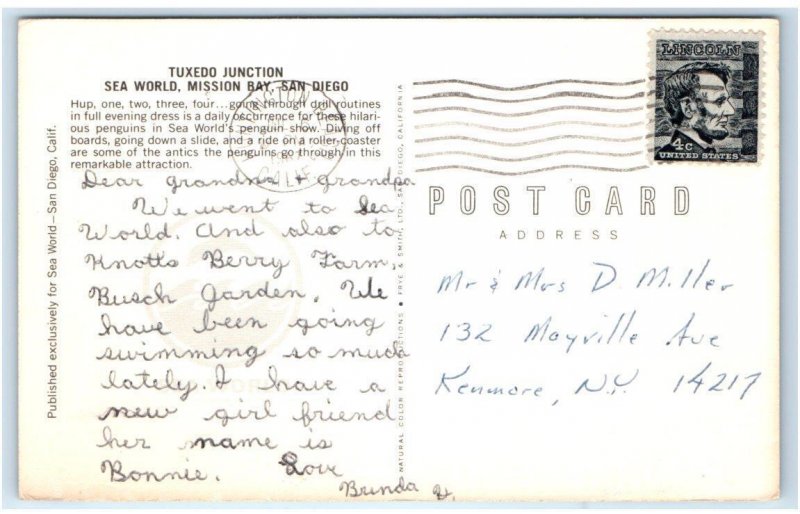 TUXEDO JUNCTION
SEA WORLD, MISSION BAY, SAN DIEGO
Hup, one, two, three, four...going through drill routines
in full evening dress is a daily occurrence for these hilari-
ous penguins in Sea World's penguin show. Diving off
boards, going down a slide, and a ride on a roller-coaster
are some of the antics the penguins go through in this
remarkable attraction.
Dear grandma + grandpa
We went to Sea
World. And also to
Knotts Berry Farm,
Busch Garden. We
have been going
swimming so much
lately. I have a
new girl friend
her name is
Bonnie. Love
Brinda
Published exclusively for Sea World—San Diego, Calif.
NATURAL COLOR REPRODUCTIONS • FRYE & SMITH, LTD., SAN DIEGO, CALIFORNIA
CALIF.
LINCOLN
4c
UNITED STATES
POST CARD
ADDRESS
Mr & Mrs D. Miller
132 Mayville Ave
Kenmore, N.Y. 14217